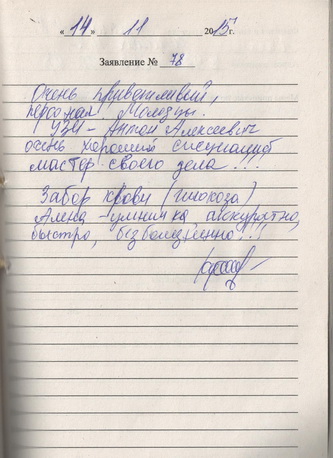 « 14 » 11 2015 г.
Заявление № 78
Очень приветливый,
персонал Молодцы.
УЗИ - Антон Алексеевич
очень хороший специалист
мастер своего дела!!!
Забор крови (глюкоза)
Алена - умничка аккуратно,
быстро, безболезненно!!!